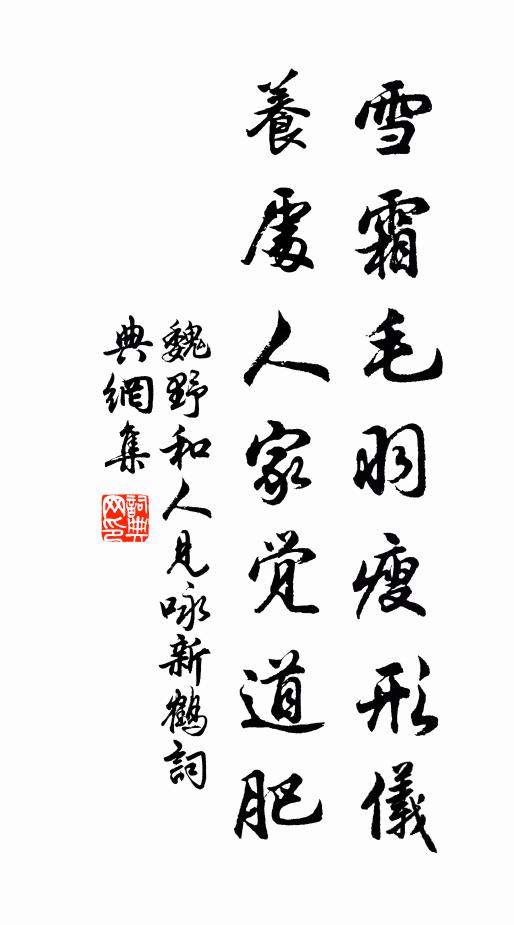 雪霜毛羽瘦形儀
養處人家覚道肥
魏野和人見咏新鶴詞
典網集
詞典网印